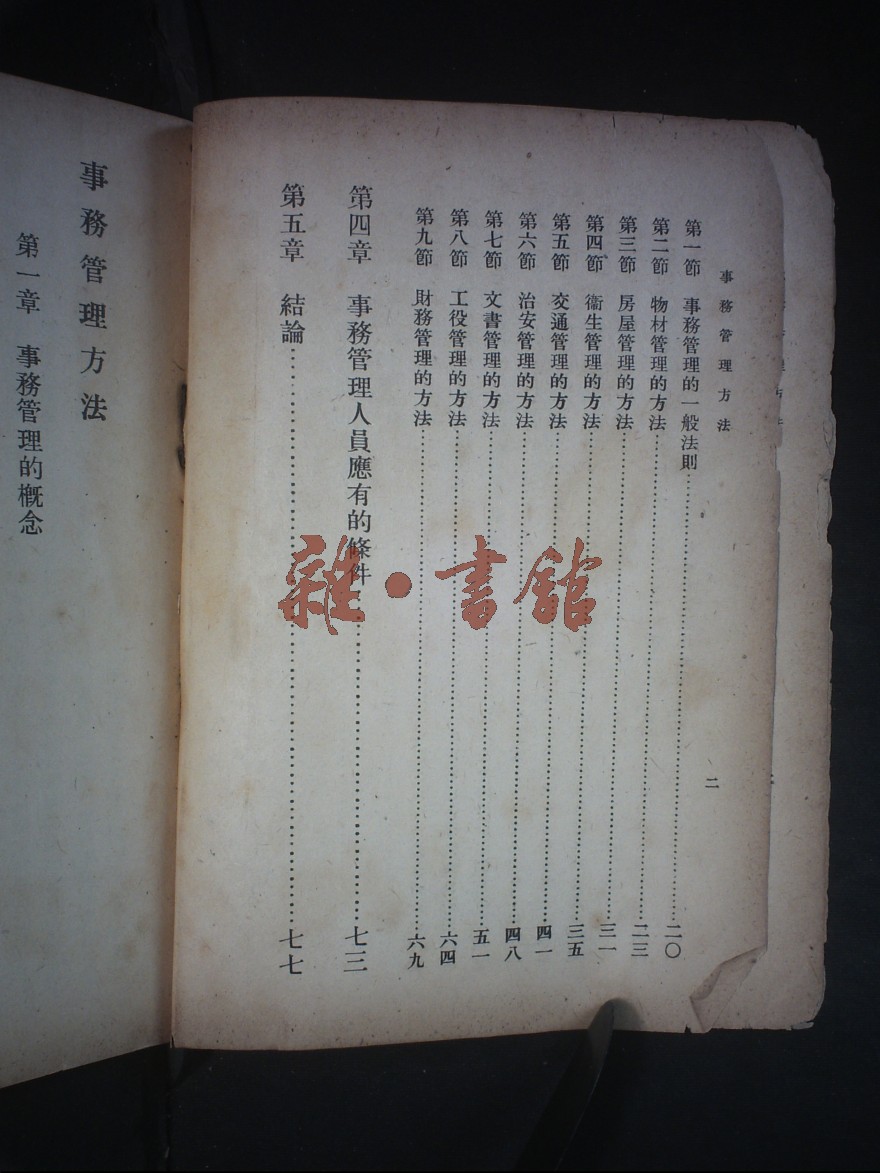 事務管理方法
二
第一節 事務管理的一般法則……二〇
第二節 物材管理的方法……二三
第三節 房屋管理的方法……三一
第四節 衞生管理的方法……三五
第五節 交通管理的方法……四一
第六節 治安管理的方法……四八
第七節 文書管理的方法……五一
第八節 工役管理的方法……六四
第九節 財務管理的方法……六九
第四章 事務管理人員應有的條件……七三
第五章 結論……七七
事務管理方法
第一章 事務管理的概念
雜·書館